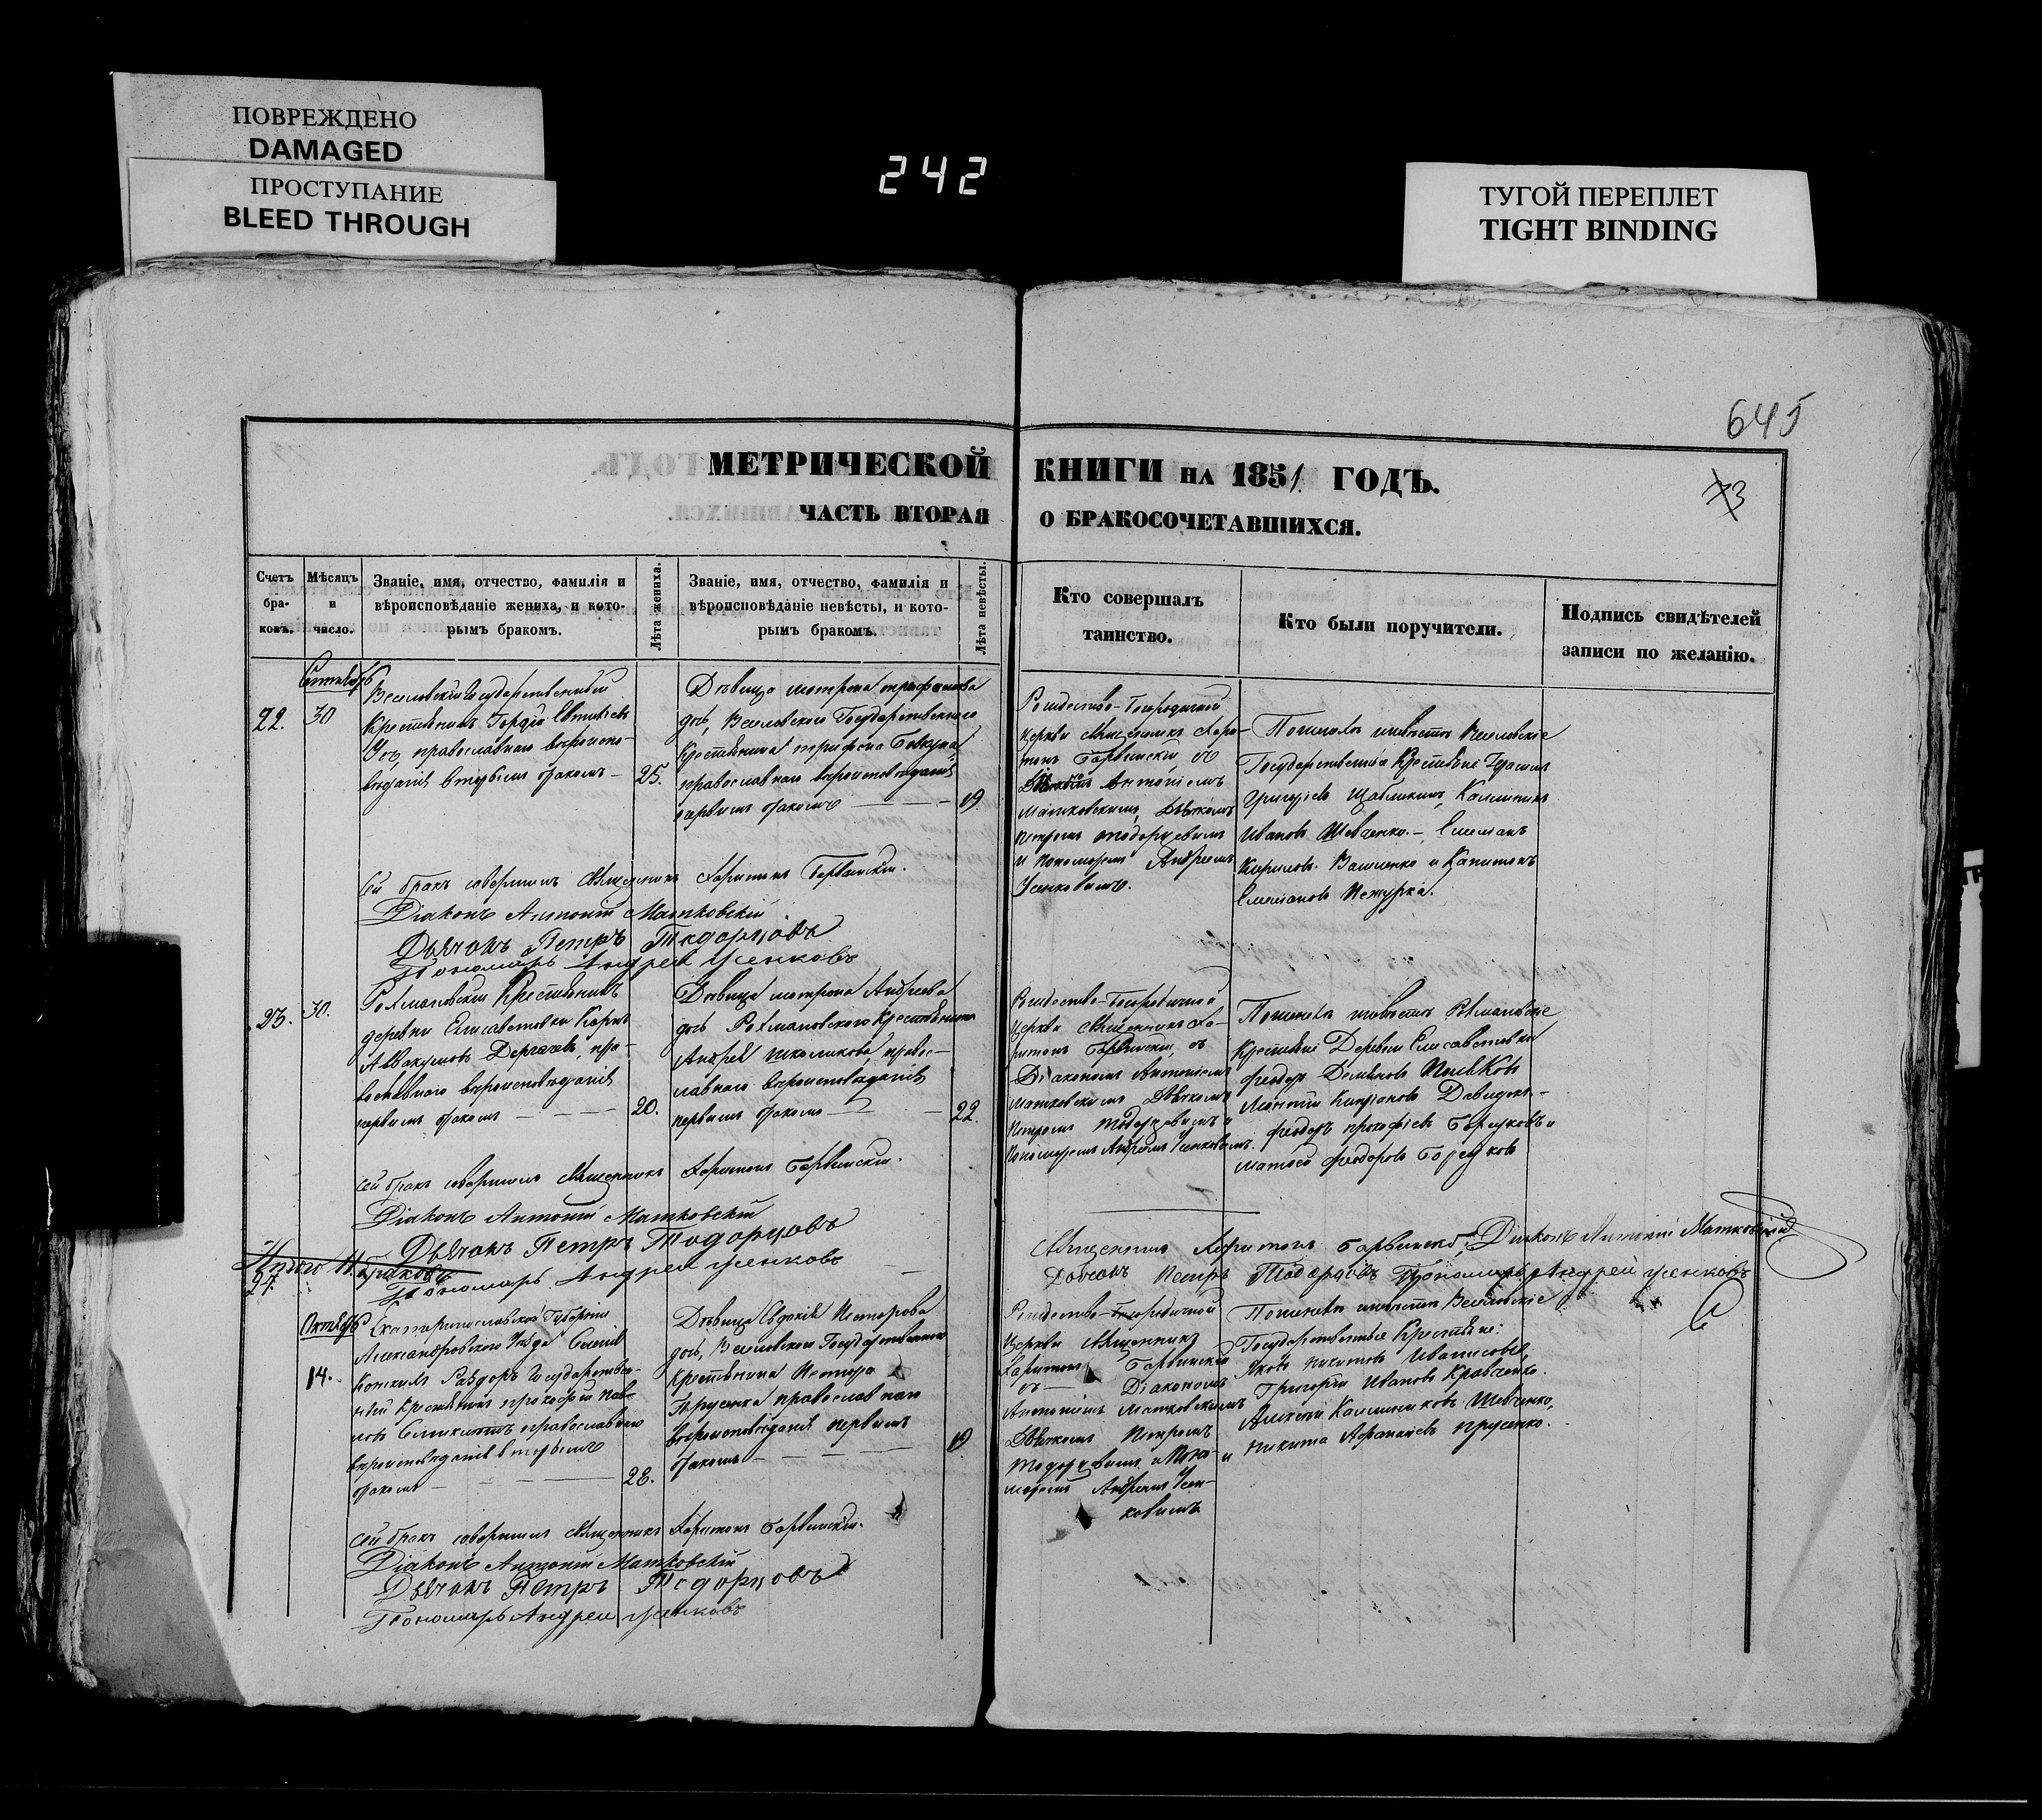 ПОВРЕЖДЕНО
DAMAGED
ПРОСТУПАНИЕ
BLEED THROUGH
242
ТУГОЙ ПЕРЕПЛЕТ
TIGHT BINDING
645
73
МЕТРИЧЕСКОЙ КНИГИ на 1851 ГОДЪ.
ЧАСТЬ ВТОРАЯ О БРАКОСОЧЕТАВШИХСЯ.
Счетъ браковъ.
Мѣсяцъ и число.
Званіе, имя, отчество, фамилія и
вѣроисповѣданіе жениха, и кото-
рымъ бракомъ.
Лѣта жениха.
Званіе, имя, отчество, фамилія и
вѣроисповѣданіе невѣсты, и кото-
рымъ бракомъ.
Лѣта невѣсты.
Кто совершалъ
таинство.
Кто были поручители.
Подпись свидѣтелей
записи по желанію.
Сентябрь
22.
30
Веселовскій Государственный
Крестьянинъ Гордій Евтихіевъ
Усъ, православнаго вѣроиспо-
вѣданія вторымъ бракомъ
25.
Дѣвица Матрона Трифонова
дочь, Веселовскаго Государственнаго
Крестьянина Трифона
православнаго вѣроисповѣданія
первымъ бракомъ
19.
Рождество-Богородичной
Церкви Священникъ Хари-
тонъ Барвинскій, съ
Діакономъ Антоніемъ
Матковскимъ, Дьячкомъ
Петромъ Тодорцовымъ
и Пономаремъ Андреемъ
Усенковымъ.
По женихѣ и невѣстѣ Веселовскіе
Государственные Крестьяне
Григорьевъ
Ивановъ Шевченко. — Емельянъ
Кириловъ и Капитонъ
Емельяновъ
Сей бракъ совершилъ Священникъ Харитонъ Барвинскій.
Діаконъ Антоній Матковскій
Дьячокъ Петръ Тодорцовъ
Пономарь Андрей Усенковъ
23.
30.
Рохмановскій Крестьянинъ
деревни Елисаветовки
Аввакумовъ Дергачевъ, пра-
вославнаго вѣроисповѣданія
первымъ бракомъ
20.
Дѣвица Матрона Андреева
дочь Рохмановскаго Крестьянина
Андрея Школикова, правос-
лавнаго вѣроисповѣданія
первымъ бракомъ
22.
Рождество-Богородичной
Церкви Священникъ Ха-
ритонъ Барвинскій, съ
Діакономъ Антоніемъ
Матковскимъ Дьячкомъ
Петромъ Тодорцовымъ и
Пономаремъ Андреемъ Усенковымъ.
По женихѣ и невѣстѣ Рохмановскіе
Крестьяне Деревни Елисаветовки
Феодоръ Демьяновъ
Феодоръ Прокофьевъ и
Матвей Феодоровъ
Сей бракъ совершилъ Священникъ Харитонъ Барвинскій.
Діаконъ Антоній Матковскій
Дьячокъ Петръ Тодорцовъ
Пономарь Андрей Усенковъ
Итого 11. браковъ
Священникъ Харитонъ Барвинскій, Діаконъ Антоній Матковскій
Дьячокъ Петръ Тодорцовъ Пономарь Андрей Усенковъ
24.
Октябрь
14.
Екатеринославской Губерніи
Александровскаго Уѣзда Селенія
Государствен-
ный Крестьянинъ Прокофій Пав-
ловъ православнаго
вѣроисповѣданія вторымъ
бракомъ
28.
Дѣвица Евдокія Несторова
дочь, Веселовскаго Государственнаго
Крестьянина Нестора
Прусенка православнаго
вѣроисповѣданія первымъ
бракомъ
19.
Рождество-Богородичной
Церкви Священникъ
Харитонъ Барвинскій
съ Діакономъ
Антоніемъ Матковскимъ
Дьячкомъ Петромъ
Тодорцовымъ и Поно-
маремъ Андреемъ Усен-
ковымъ
По женихѣ и невѣстѣ Веселовскіе
Государственные Крестьяне:
Яковъ Никитовъ
Григорій Ивановъ Кравченко.
Алексей Калинниковъ Шевченко,
и Никита Афанасіевъ Прусенко.
Сей бракъ совершилъ Священникъ Харитонъ Барвинскій.
Діаконъ Антоній Матковскій
Дьячокъ Петръ Тодорцовъ
Пономарь Андрей Усенковъ